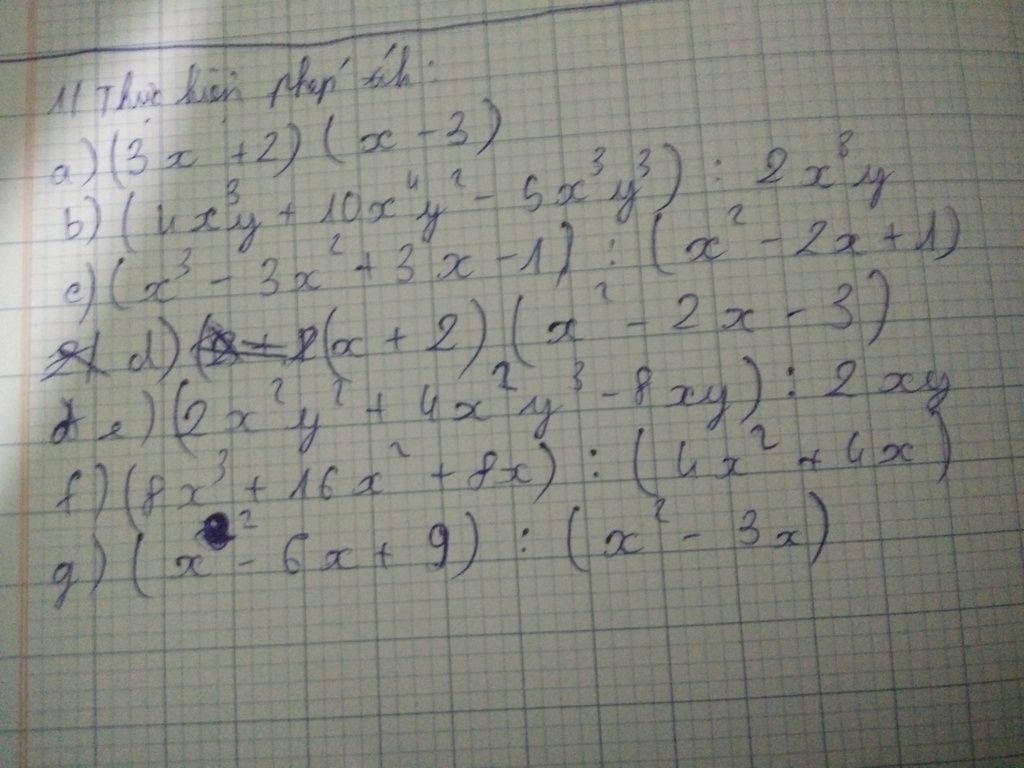 1/ Thực hiện phép tính:
a) (3x + 2) (x - 3)
b) (4x³y + 10x⁴y² - 6x³y³) : 2x³y
c) (x³ - 3x² + 3x - 1) : (x² - 2x + 1)
d) (x + 2) (x² - 2x - 3)
e) (2x²y² + 4x²y³ - 8xy) : 2xy
f) (8x³ + 16x² + 8x) : (4x² + 4x)
g) (x² - 6x + 9) : (x² - 3x)